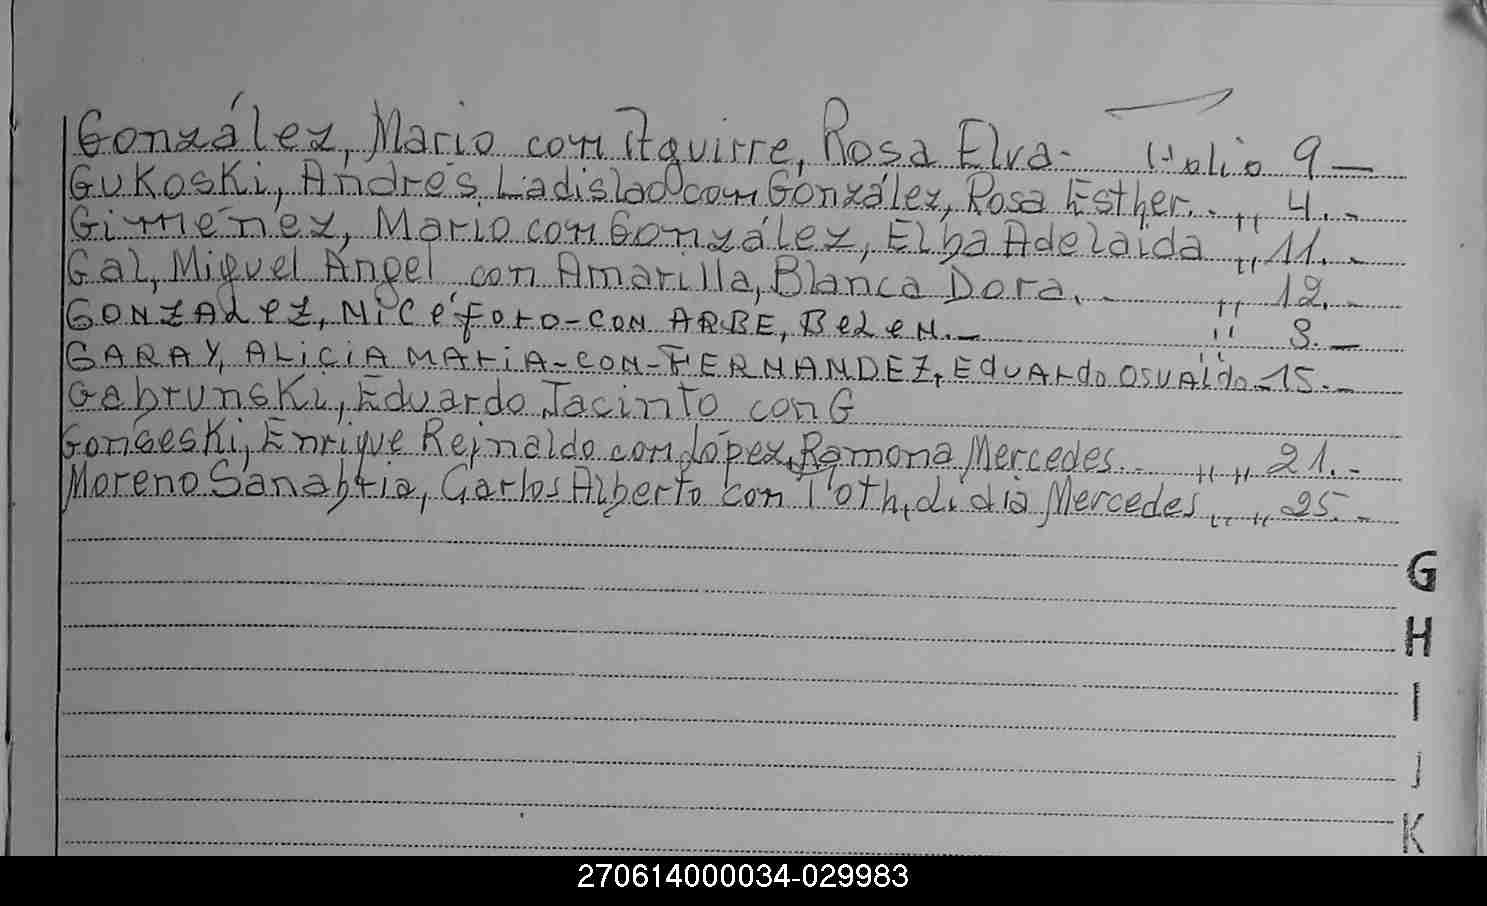 González, Mario con Aguirre, Rosa Elva- Folio 9 —
Gukoski, Andrés Ladislao con González, Rosa Esther. - ,, 4. -
Giménez, Mario con González, Elba Adelaida ,, 11. -
Gal, Miguel Angel con Amarilla, Blanca Dora. - ,, 12. -
GONZALEZ, NICéFORO-CON ARBE, BELEN.- ,, 8. —
GARAY, ALICIA MARIA-CON-FERNANDEZ, EDUARDO OSVALDO-15. -
Gabrunski, Eduardo Jacinto con G
Enrique Reinaldo con López, Ramona Mercedes. - ,, ,, 21. -
Moreno Sanabria, Carlos Alberto con Toth, Lidia Mercedes, ,, ,, 25. -
G
H
I
J
K
270614000034-029983